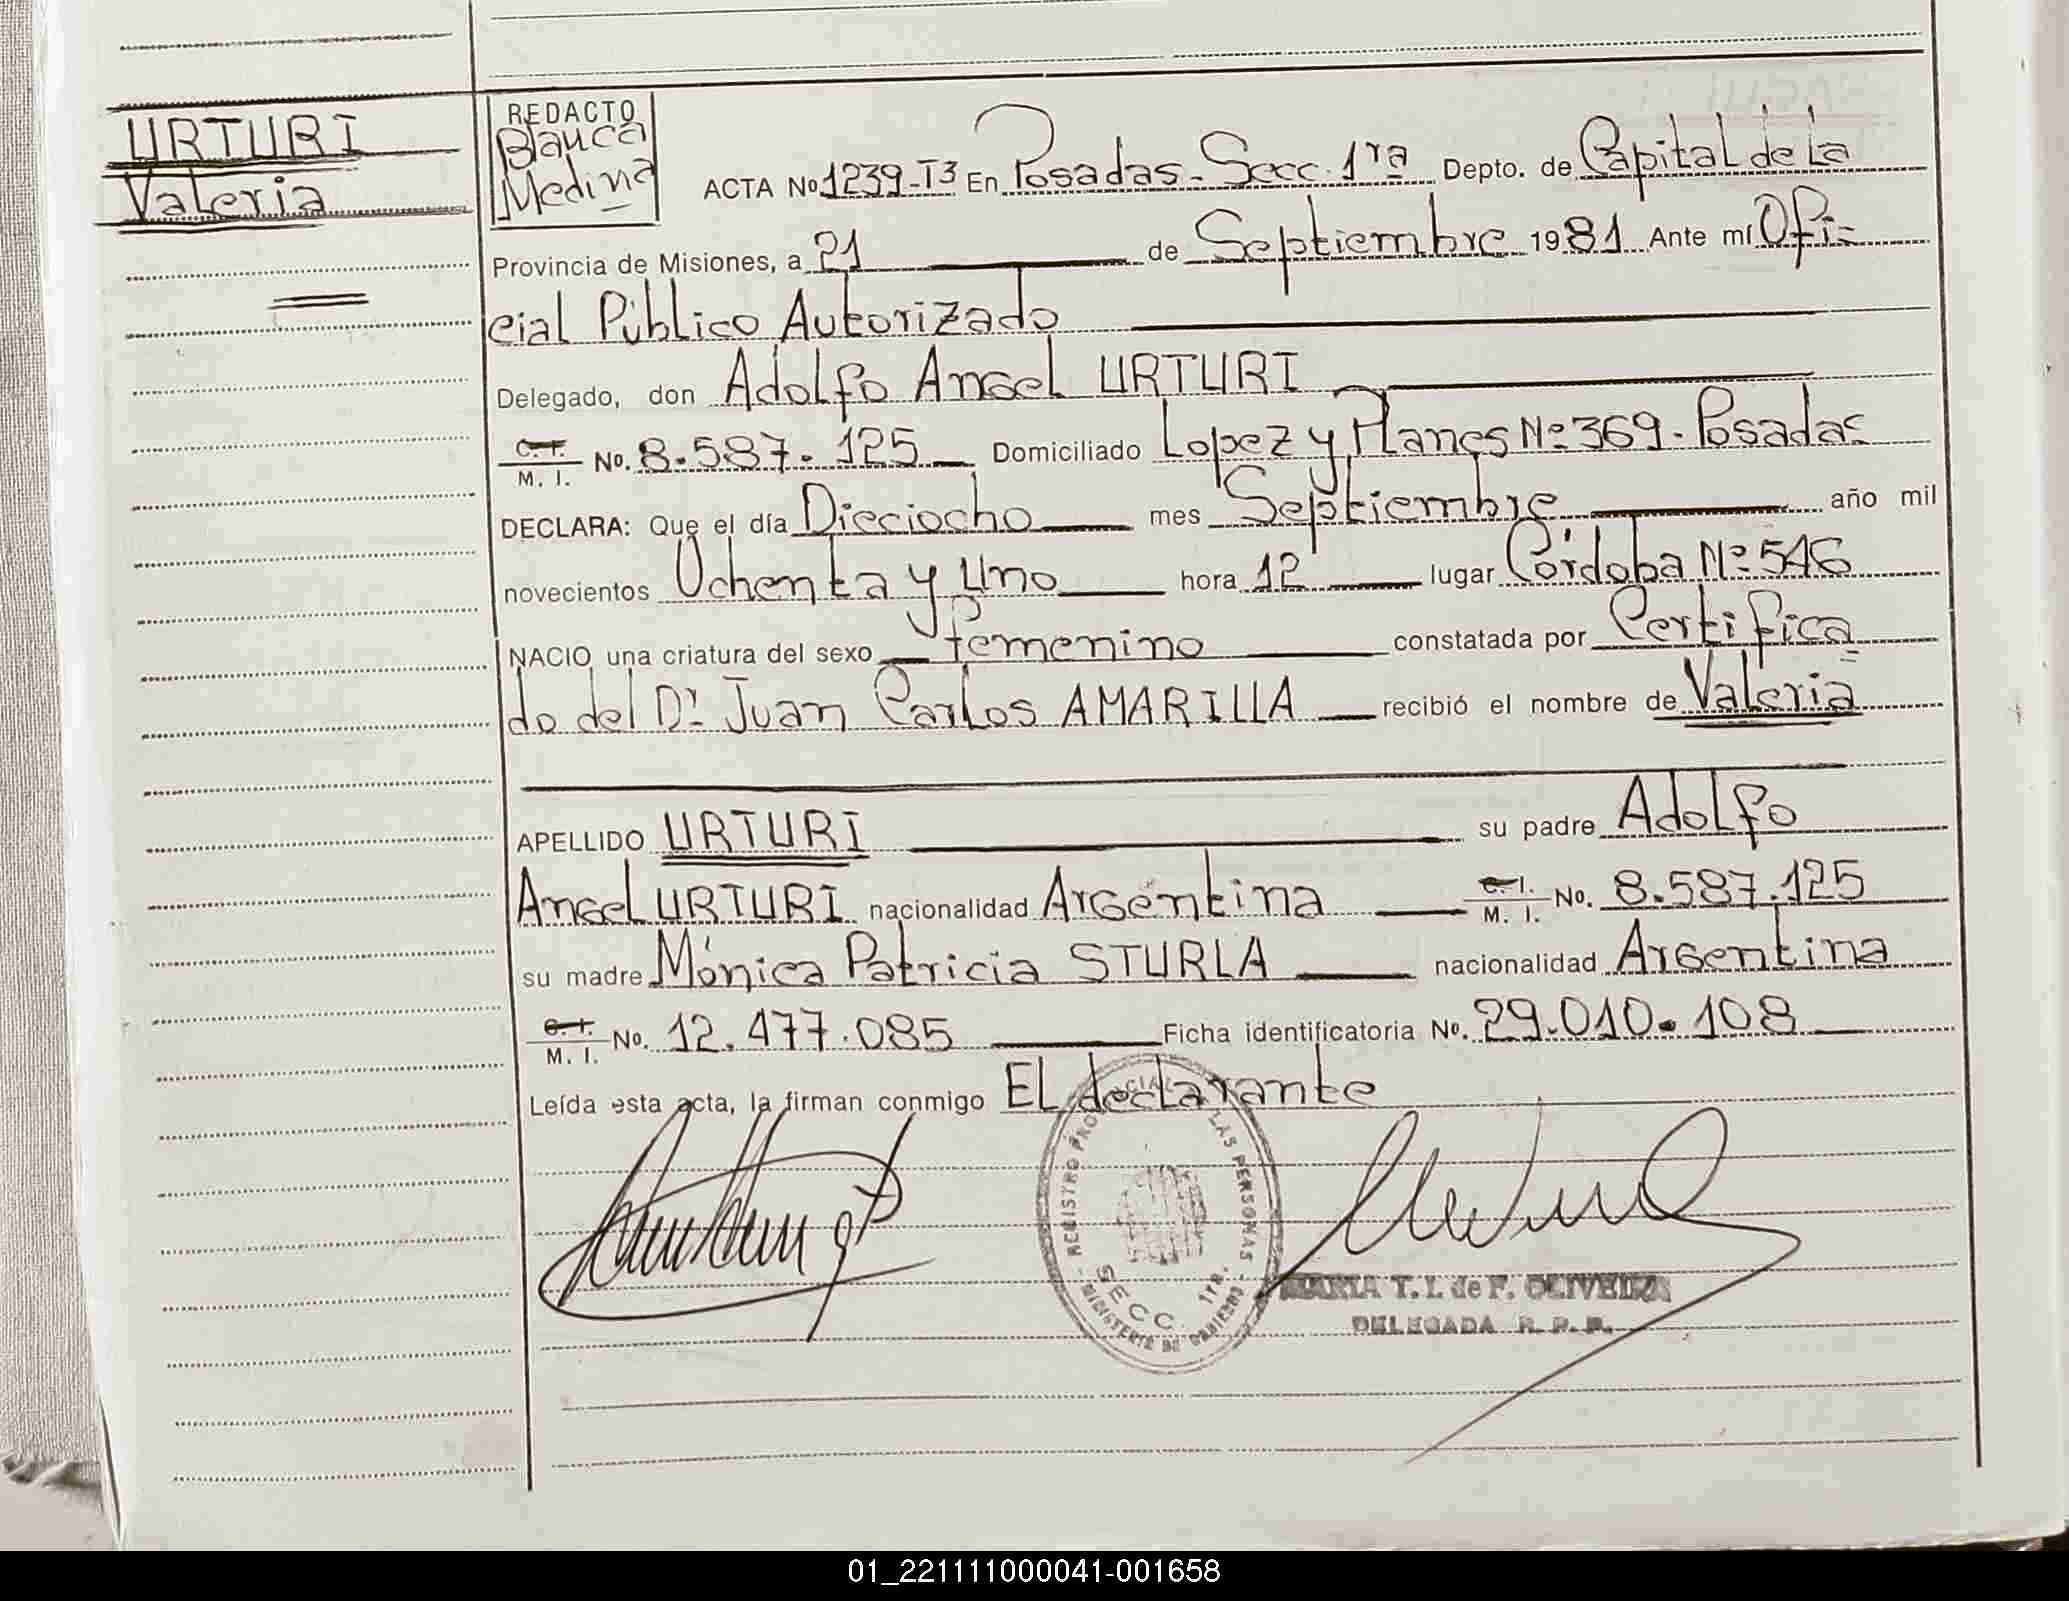 URTURI
Valeria
REDACTO
Blanca
Medina
ACTA No 1239-T3 En Posadas - Secc. 1ra Depto. de Capital de La
Provincia de Misiones, a 21 de Septiembre 1981 Ante mí Ofi=
cial Público Autorizado
Delegado, don Adolfo Angel URTURI
C. I.
M. I. No. 8.587.125 Domiciliado Lopez y Planes Nº 369 - Posadas
DECLARA: Que el día Dieciocho mes Septiembre año mil
novecientos Ochenta y Uno hora 12 lugar Córdoba Nº 546
NACIO una criatura del sexo femenino constatada por Certifica=
do del Dr. Juan Carlos AMARILLA recibió el nombre de Valeria
APELLIDO URTURI su padre Adolfo
Angel URTURI nacionalidad Argentina C. I.
M. I. No. 8.587.125
su madre Mónica Patricia STURLA nacionalidad Argentina
C. I.
M. I. No. 12.477.085 Ficha identificatoria No. 29.010.108
Leída esta acta, la firman conmigo El declarante
REGISTRO PROVINCIAL LAS PERSONAS
SECC. 1ra.
MINISTERIO DE GOBIERNO
MARIA T. I. de F. OLIVEIRA
DELEGADA R. P. P.
01_221111000041-001658